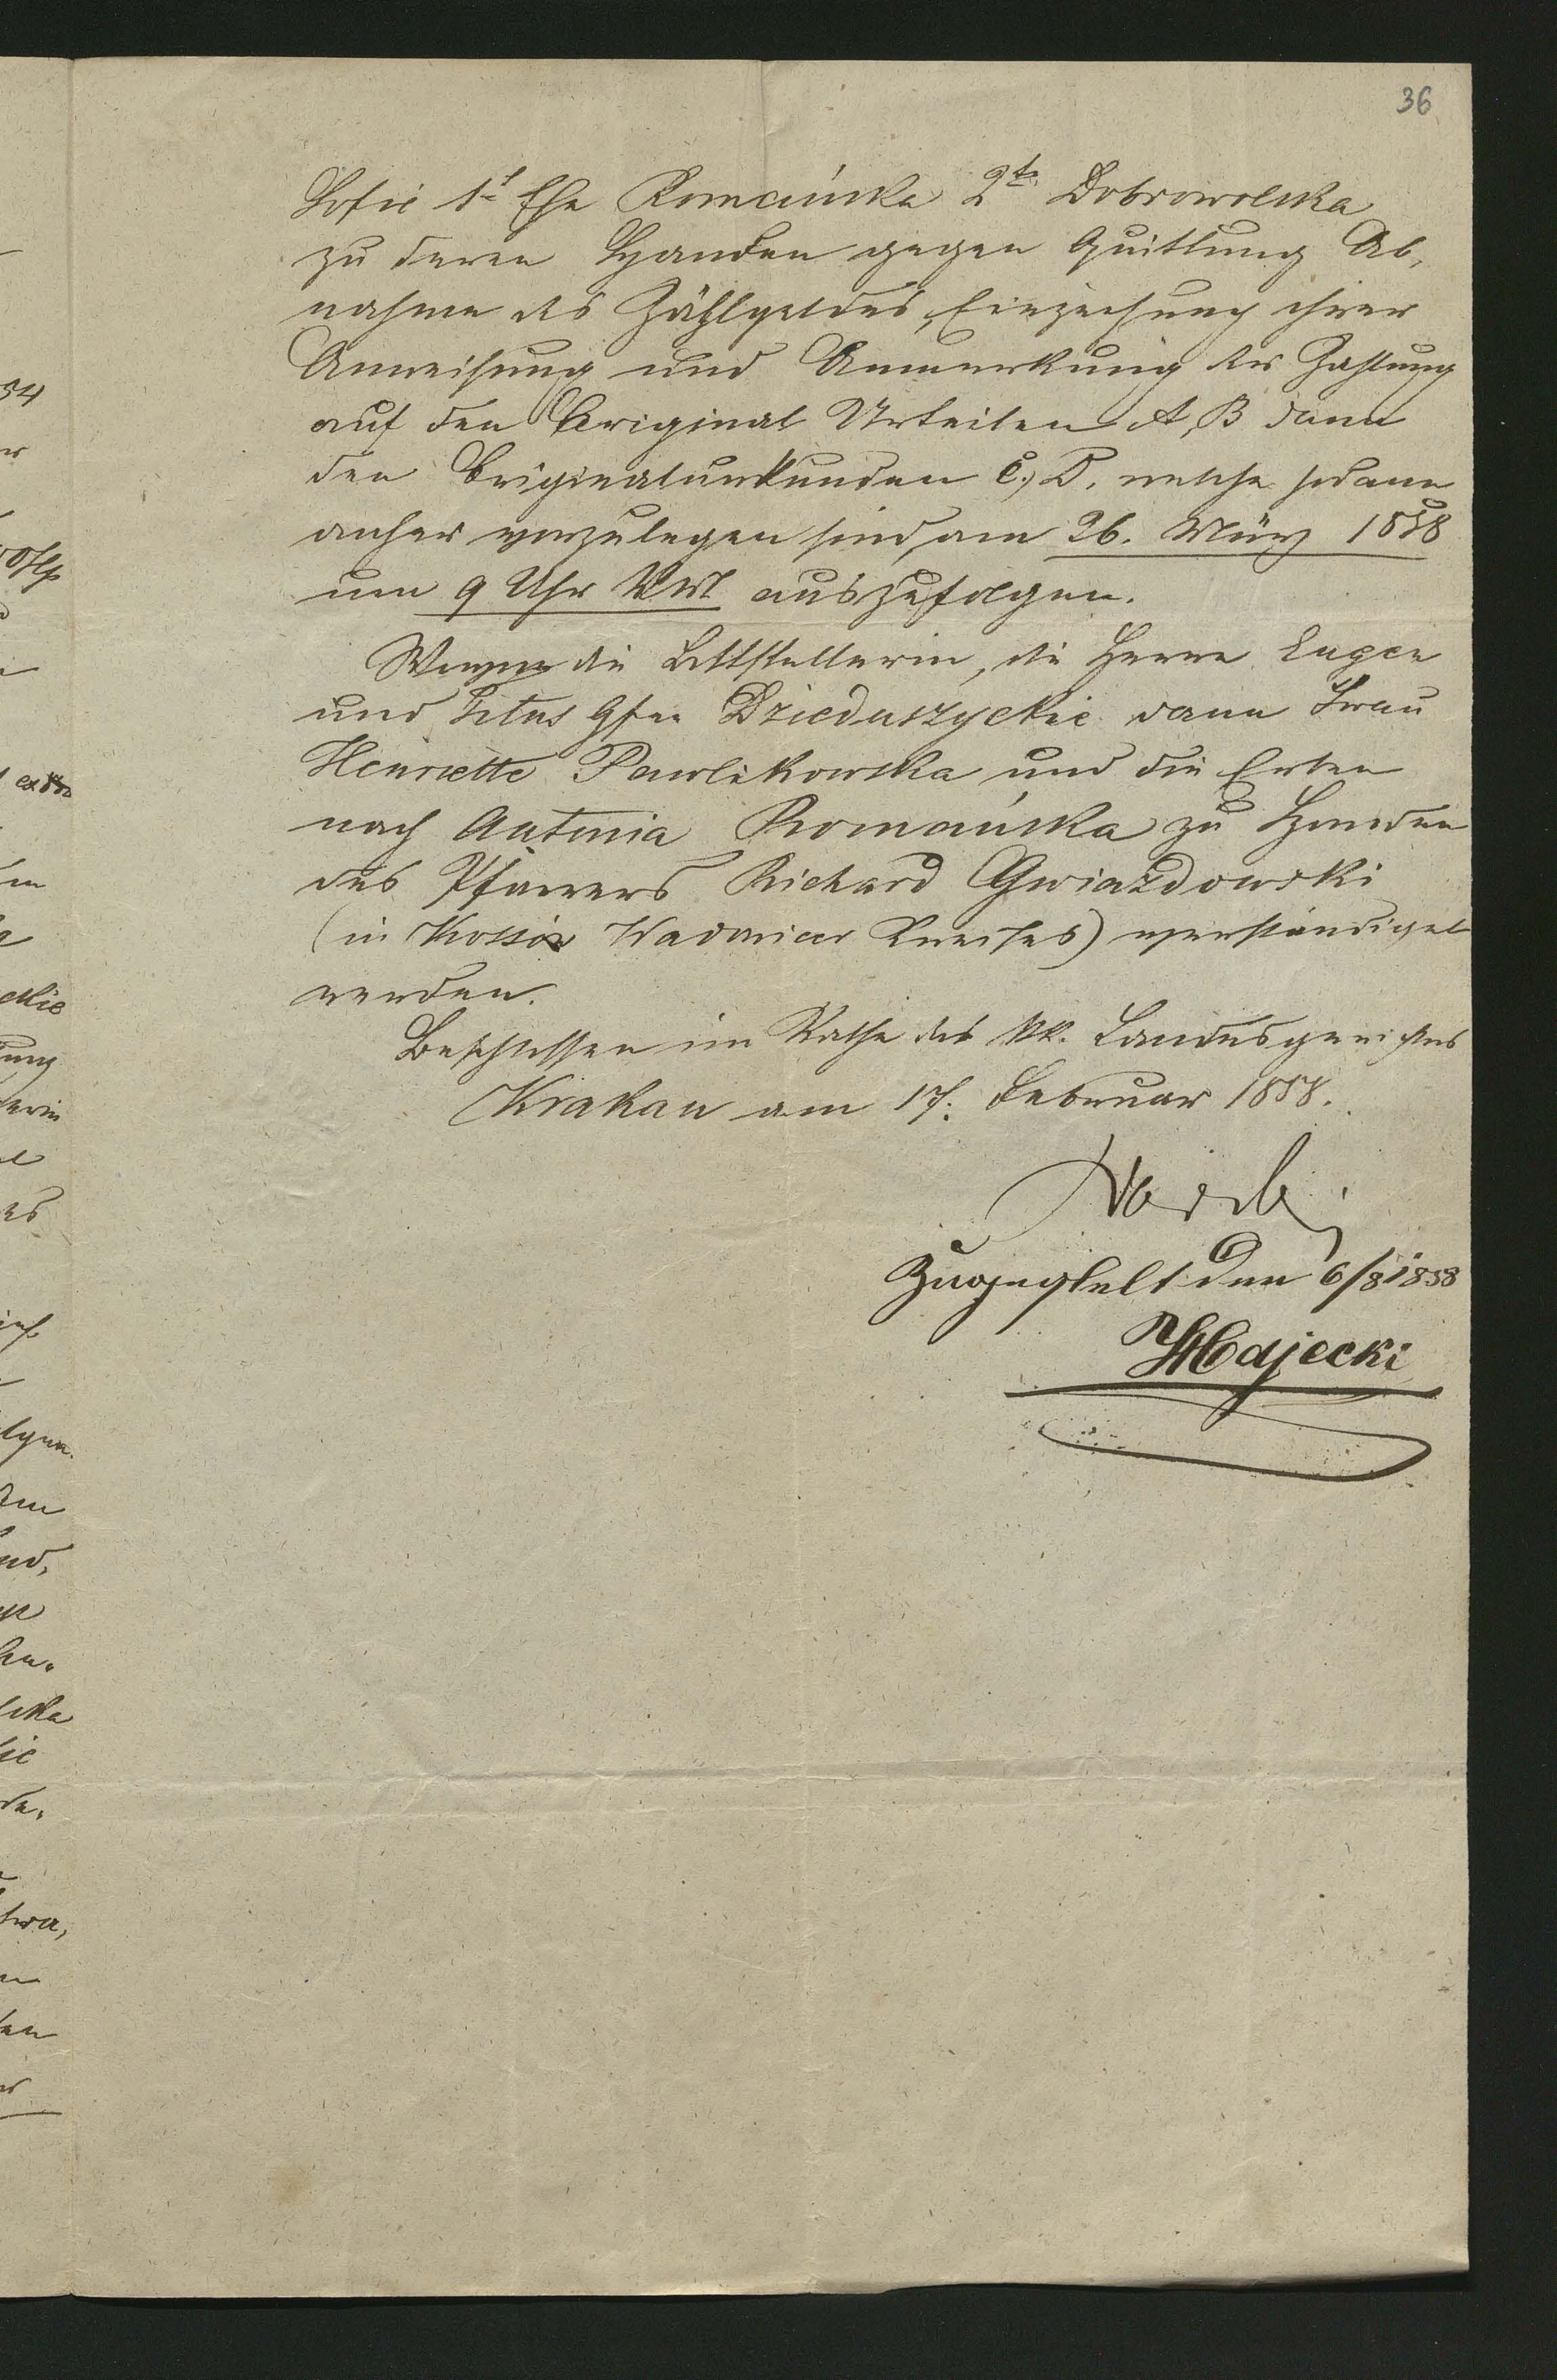 36
Sofie 1t Ehe Romańska 2te Dobrowolska
zu deren Handen gegen Quittung Ab,
nahme des Zählgeldes, Einziehung ihrer
Anweisung und Anmerkung der Zahlung
auf den Original Urteilen A, B dann
den Originalurkunden C, D. welche sodann
anher vorzulegen sind, am 26. März 1858
um 9 Uhr VM auszufolgen.
Wovon die Bittstellerin, die Herrn Eugen
und Titus Gfen Dzieduszyckie dann Frau
Henriette Pawlikowska und die Erben
nach Antonia Romańska zu Handen
des Pfarrers Richard Gwiazdowski
(in Wadowicer Kreises) verständiget
werden.
Beschlossen im Rathe des kk. Landesgerichtes
Krakau am 17. Februar 1858.
Zugestelt den 6/8 1858